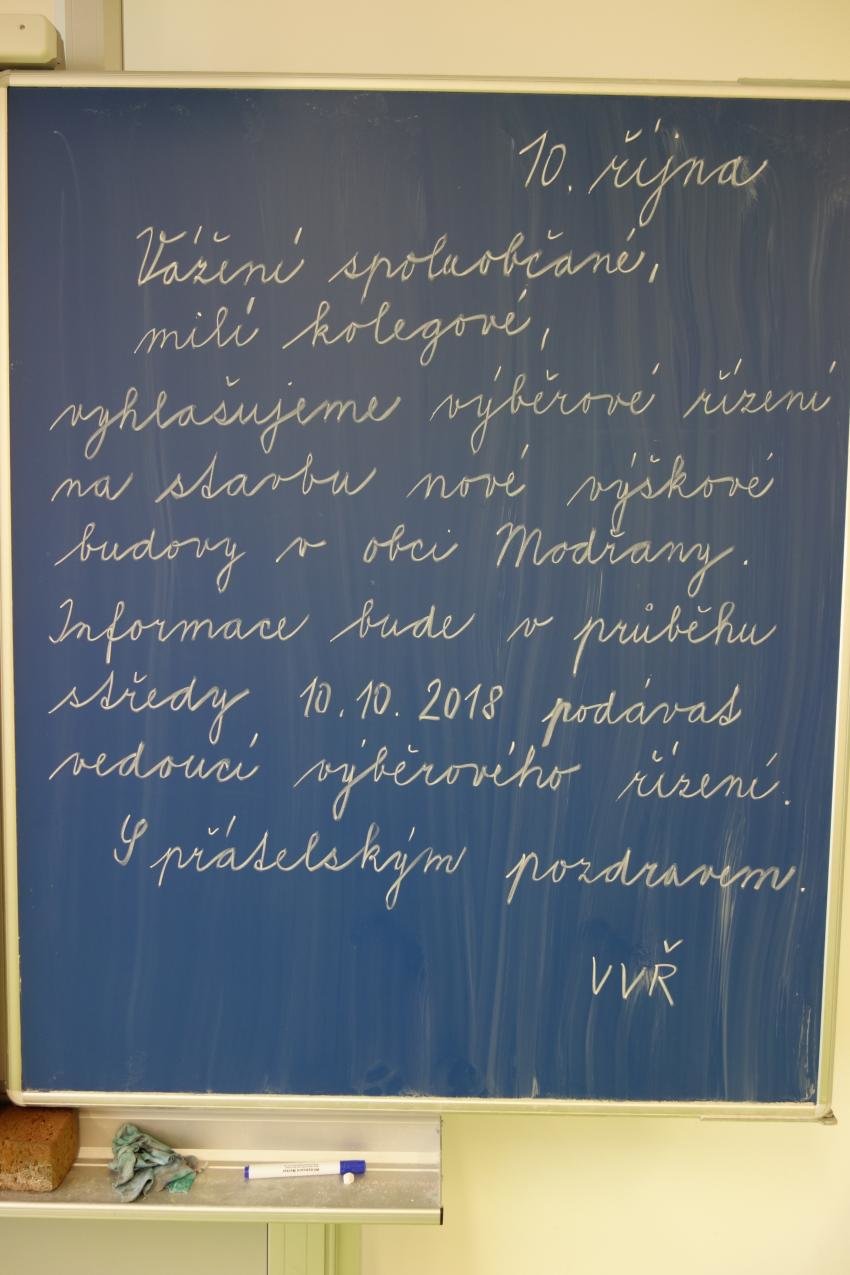 10. října
Vážení spoluobčané,
milí kolegové,
vyhlašujeme výběrové řízení
na stavbu nové výškové
budovy v obci Modřany.
Informace bude v průběhu
středy 10.10.2018 podávat
vedoucí výběrového řízení.
S přátelským pozdravem.
VVŘ